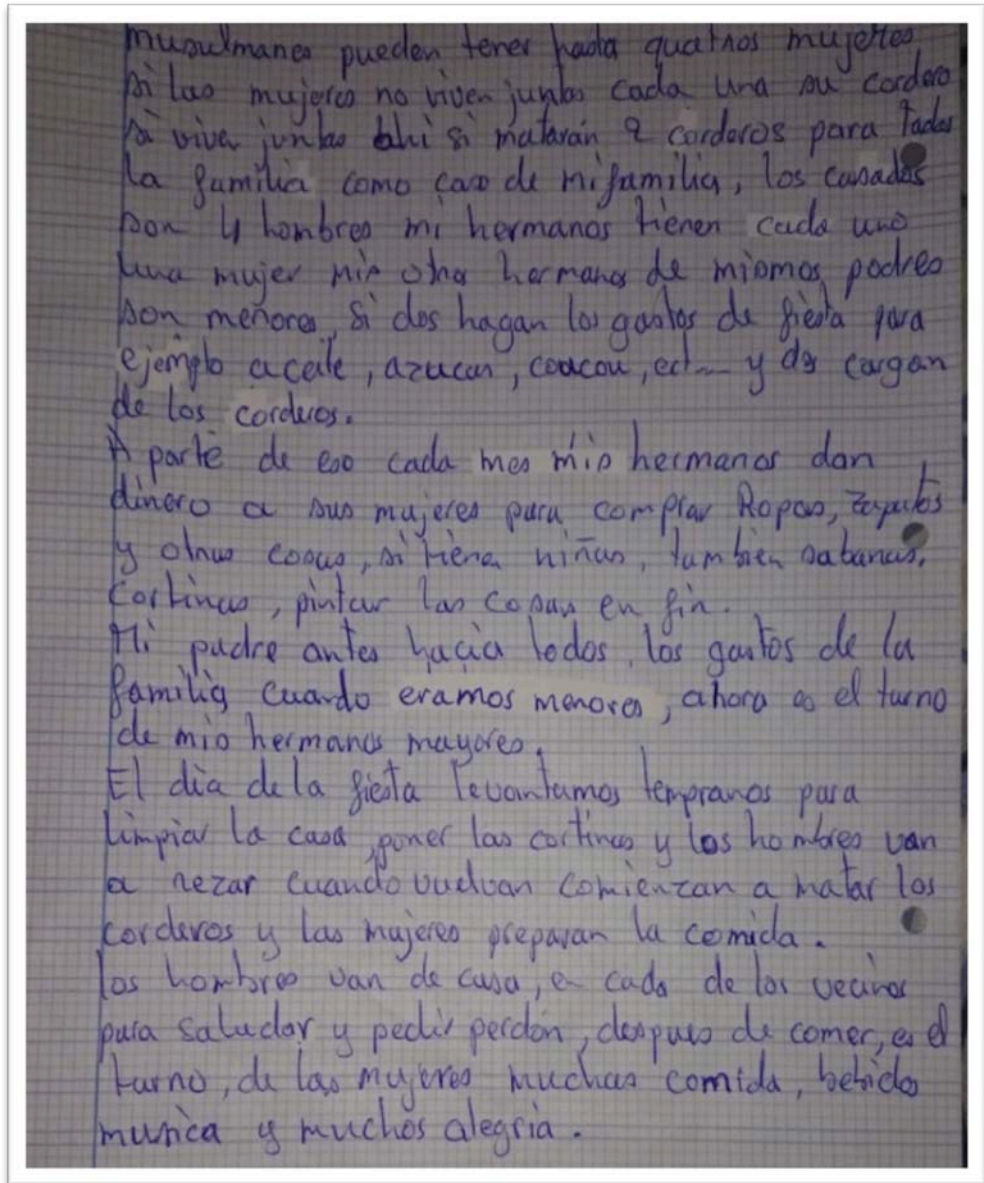 musulmanes pueden tener hasta quatros mujeres
si las mujeres no viven juntas cada una su cordero
si vive juntas ahi si matarán 2 corderos para todos
la familia como caso de mi familia, los casados
son 4 hombres mi hermanos tienen cada uno
una mujer mis otros hermanos de mismos padres
son menores, Si dos hagan los gastos de fiesta para
ejemplo aceite, azucar, coucou, ect... y dos cargan
de los corderos.
A parte de eso cada mes mis hermanos dan
dinero a sus mujeres para comprar Ropas, Zapatos
y otras cosas, si tiene niñas, tambien sabanas,
Cortinas, pintar las casas en fin.
Mi padre antes hacia todos los gastos de la
familia cuando eramos menores, ahora es el turno
de mis hermanos mayores.
El dia de la fiesta levantamos tempranos para
limpiar la casa, poner las cortinas y los hombres van
a rezar cuando vuelvan comienzan a matar los
corderos y las mujeres preparan la comida.
los hombres van de casa, en cada de los vecinos
para saludar y pedir perdón, despues de comer, es el
turno, de las mujeres muchas comida, bebida
musica y muchos alegria.